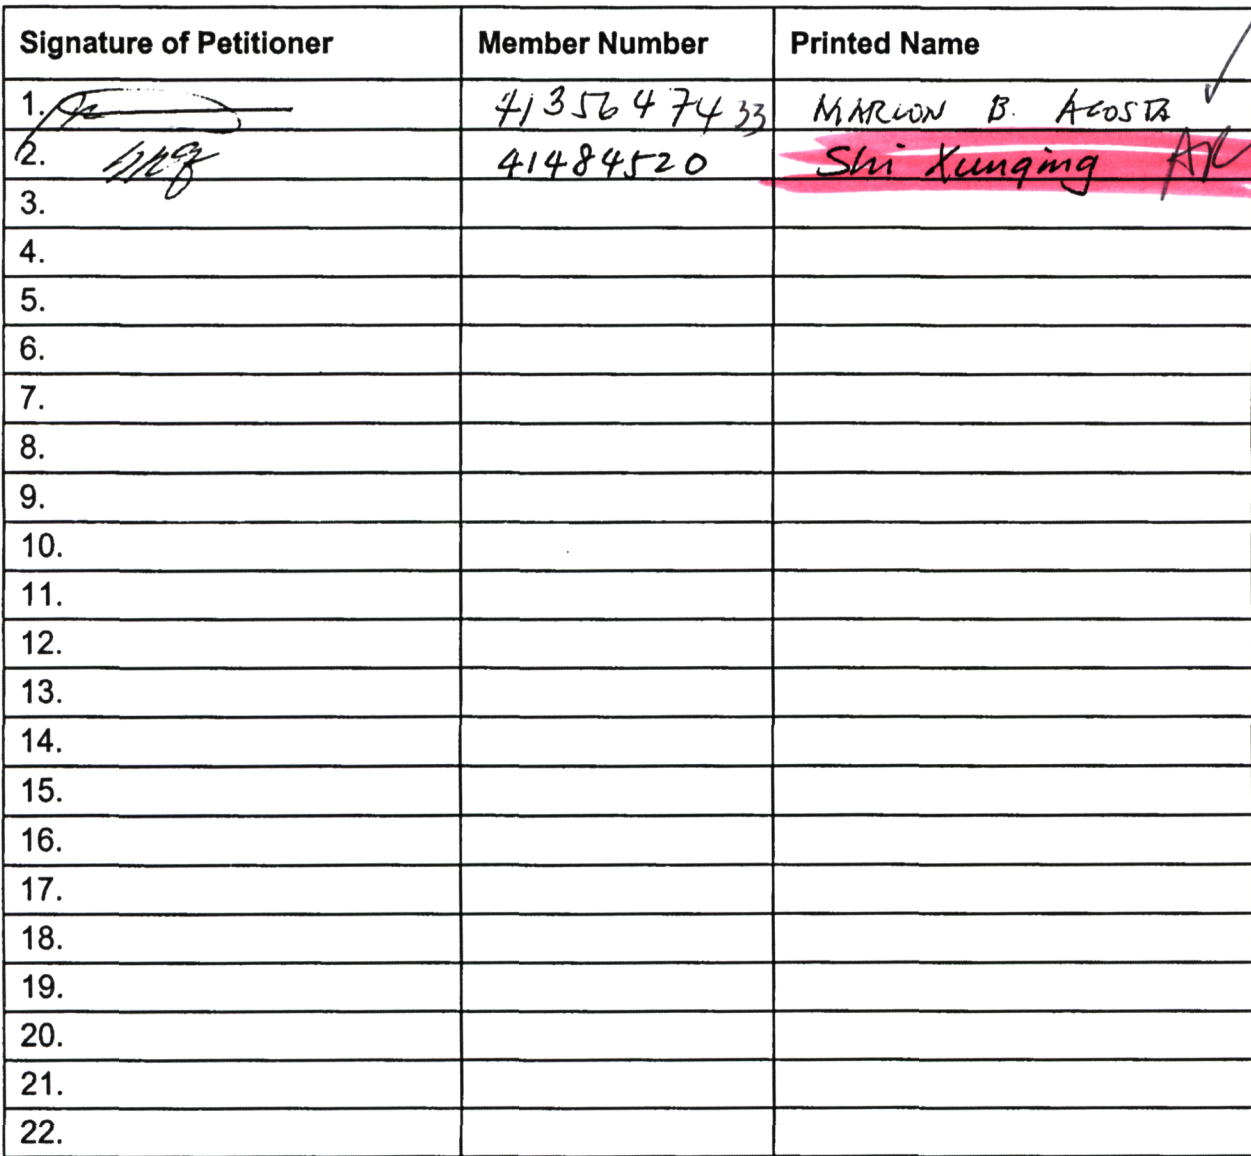 Signature of Petitioner Member Number Printed Name
1. 41356474 33 MARLON B. ACOSTA
2. 41484520 Shi Xunqing
3.
4.
5.
6.
7.
8.
9.
10.
11.
12.
13.
14.
15.
16.
17.
18.
19.
20.
21.
22.